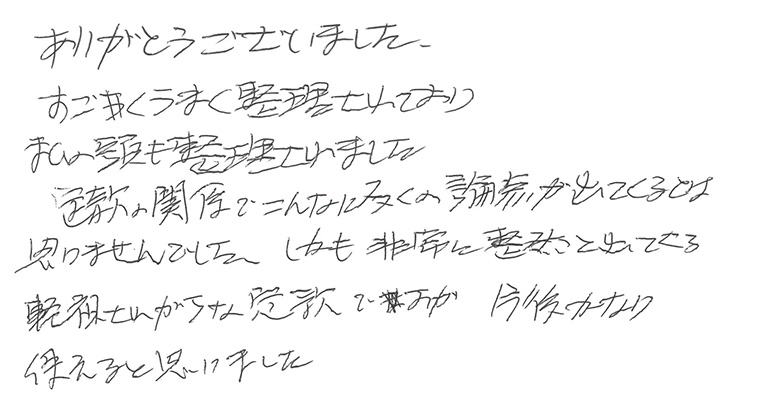 ありがとうございました。
すごくうまく整理されており
私の頭も整理されました
定款の関係でこんなに多くの論点が出てくるとは
思いませんでした。しかも非常に出てくる
軽視されがちな定款ですが 今後かなり
使えると思いました